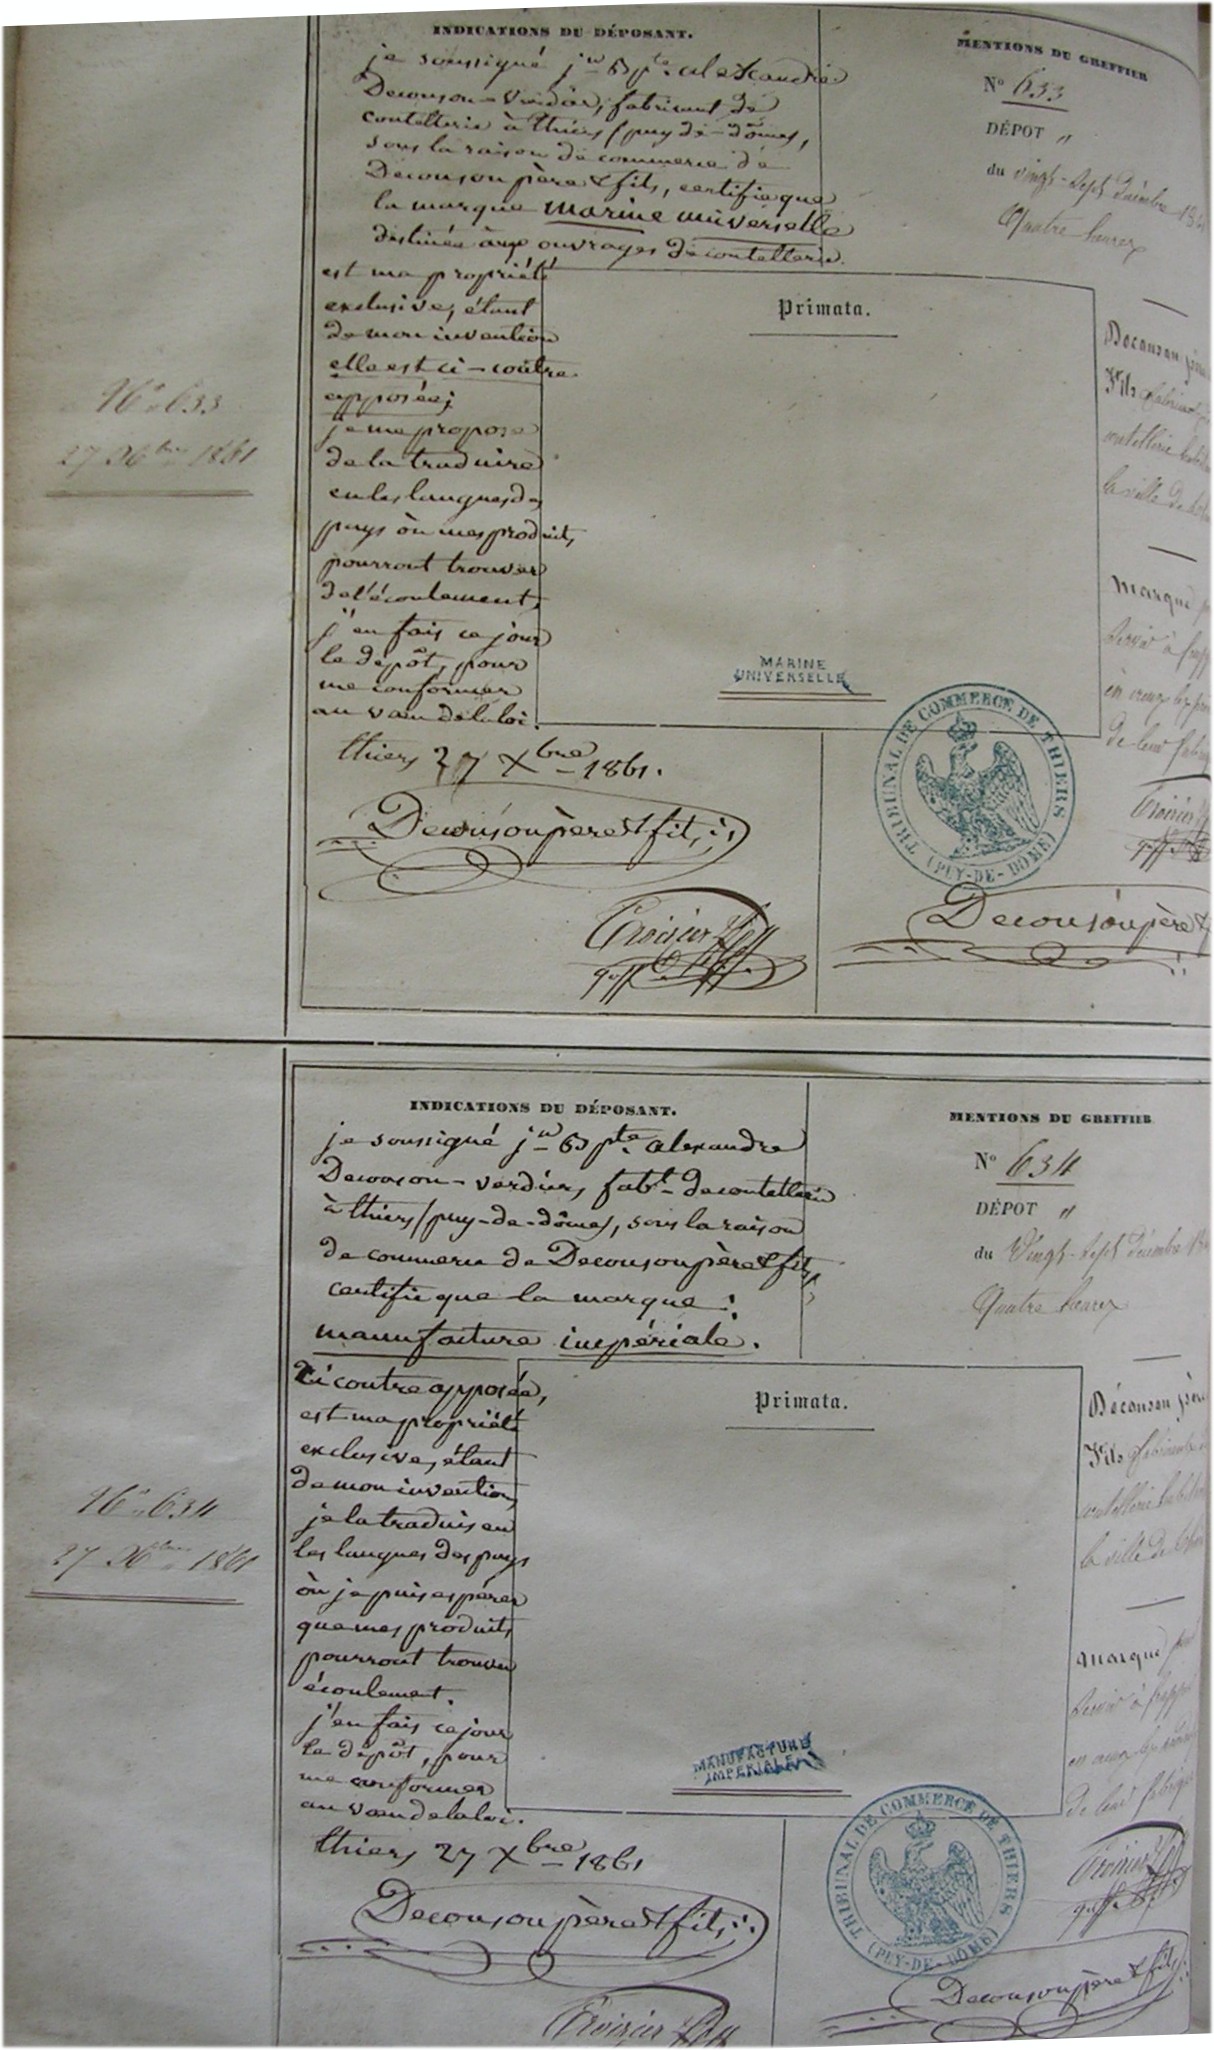 INDICATIONS DU DÉPOSANT.
je soussigné jn Bpte alexandre
Decouson-Verdier, fabricant de
coutellerie à thiers (puy-de-dôme),
sous la raison de commerce de
Decouson père & fils, certifie que
la marque marine universelle
destinée aux ouvrages de coutellerie
est ma propriété
exclusive, étant
de mon invention
elle est ci-contre
apposée;
je me propose
de la traduire
en les langues des
pays où mes produits
pourront trouver
de l'écoulement,
j'en fais ce jour
le dépôt, pour
me conformer
au vœu de la loi.
thiers 27 Xbre 1861.
Decouson père & fils
Primata.
MARINE
UNIVERSELLE
MENTIONS DU GREFFIER
No 633
DÉPOT "
du vingt-sept décembre
Quatre heures
Decouson
Fils
coutellerie
la ville de
Marque
servir à
en creux les
de leur
TRIBUNAL DE COMMERCE DE THIERS
(PUY-DE-DOME)
Decouson père &
No 633
27 Xbre 1861
INDICATIONS DU DÉPOSANT.
je soussigné jn Bpte alexandre
Decouson-verdier, fabt de coutellerie
à thiers (puy-de-dôme), sous la raison
de commerce de Decouson père & fils,
certifie que la marque:
manufacture impériale.
Ci contre apposée,
est ma propriété
exclusive, étant
de mon invention,
je la traduis en
les langues des pays
où je puis espérer
que mes produits
pourront trouver
écoulement.
j'en fais ce jour
le dépôt, pour
me conformer
au vœu de la loi.
thiers 27 Xbre 1861
Decouson père & fils
Primata.
MANUFACTURE
IMPERIALE
MENTIONS DU GREFFIER
No 634
DÉPOT "
du Vingt-sept décembre
Quatre heures
Découson père
Fils
coutellerie
la ville de
Marque
servir à
en creux les
de leur fabrique
TRIBUNAL DE COMMERCE DE THIERS
(PUY-DE-DOME)
Decouson père & fils
No 634
27 Xbre 1861